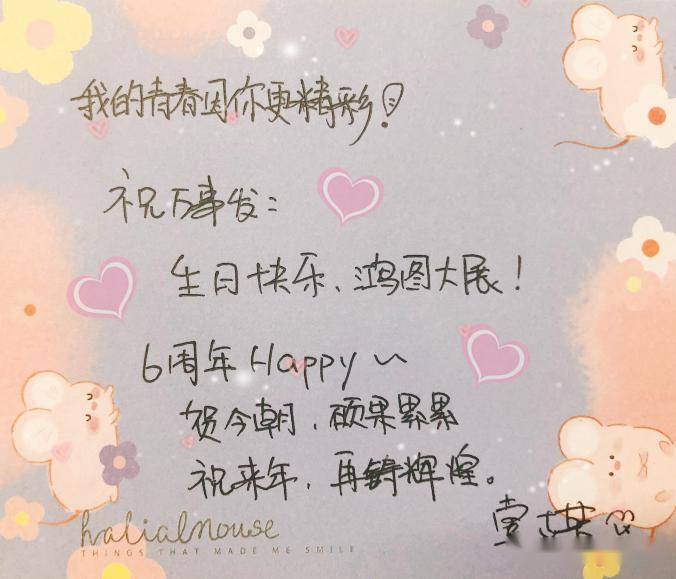 我的青春因你更精彩！
祝万事发：
生日快乐、鸿图大展！
6周年Happy~
贺今朝，硕果累累
祝来年，再铸辉煌。
halialmouse
THINGS THAT MADE ME SMILE